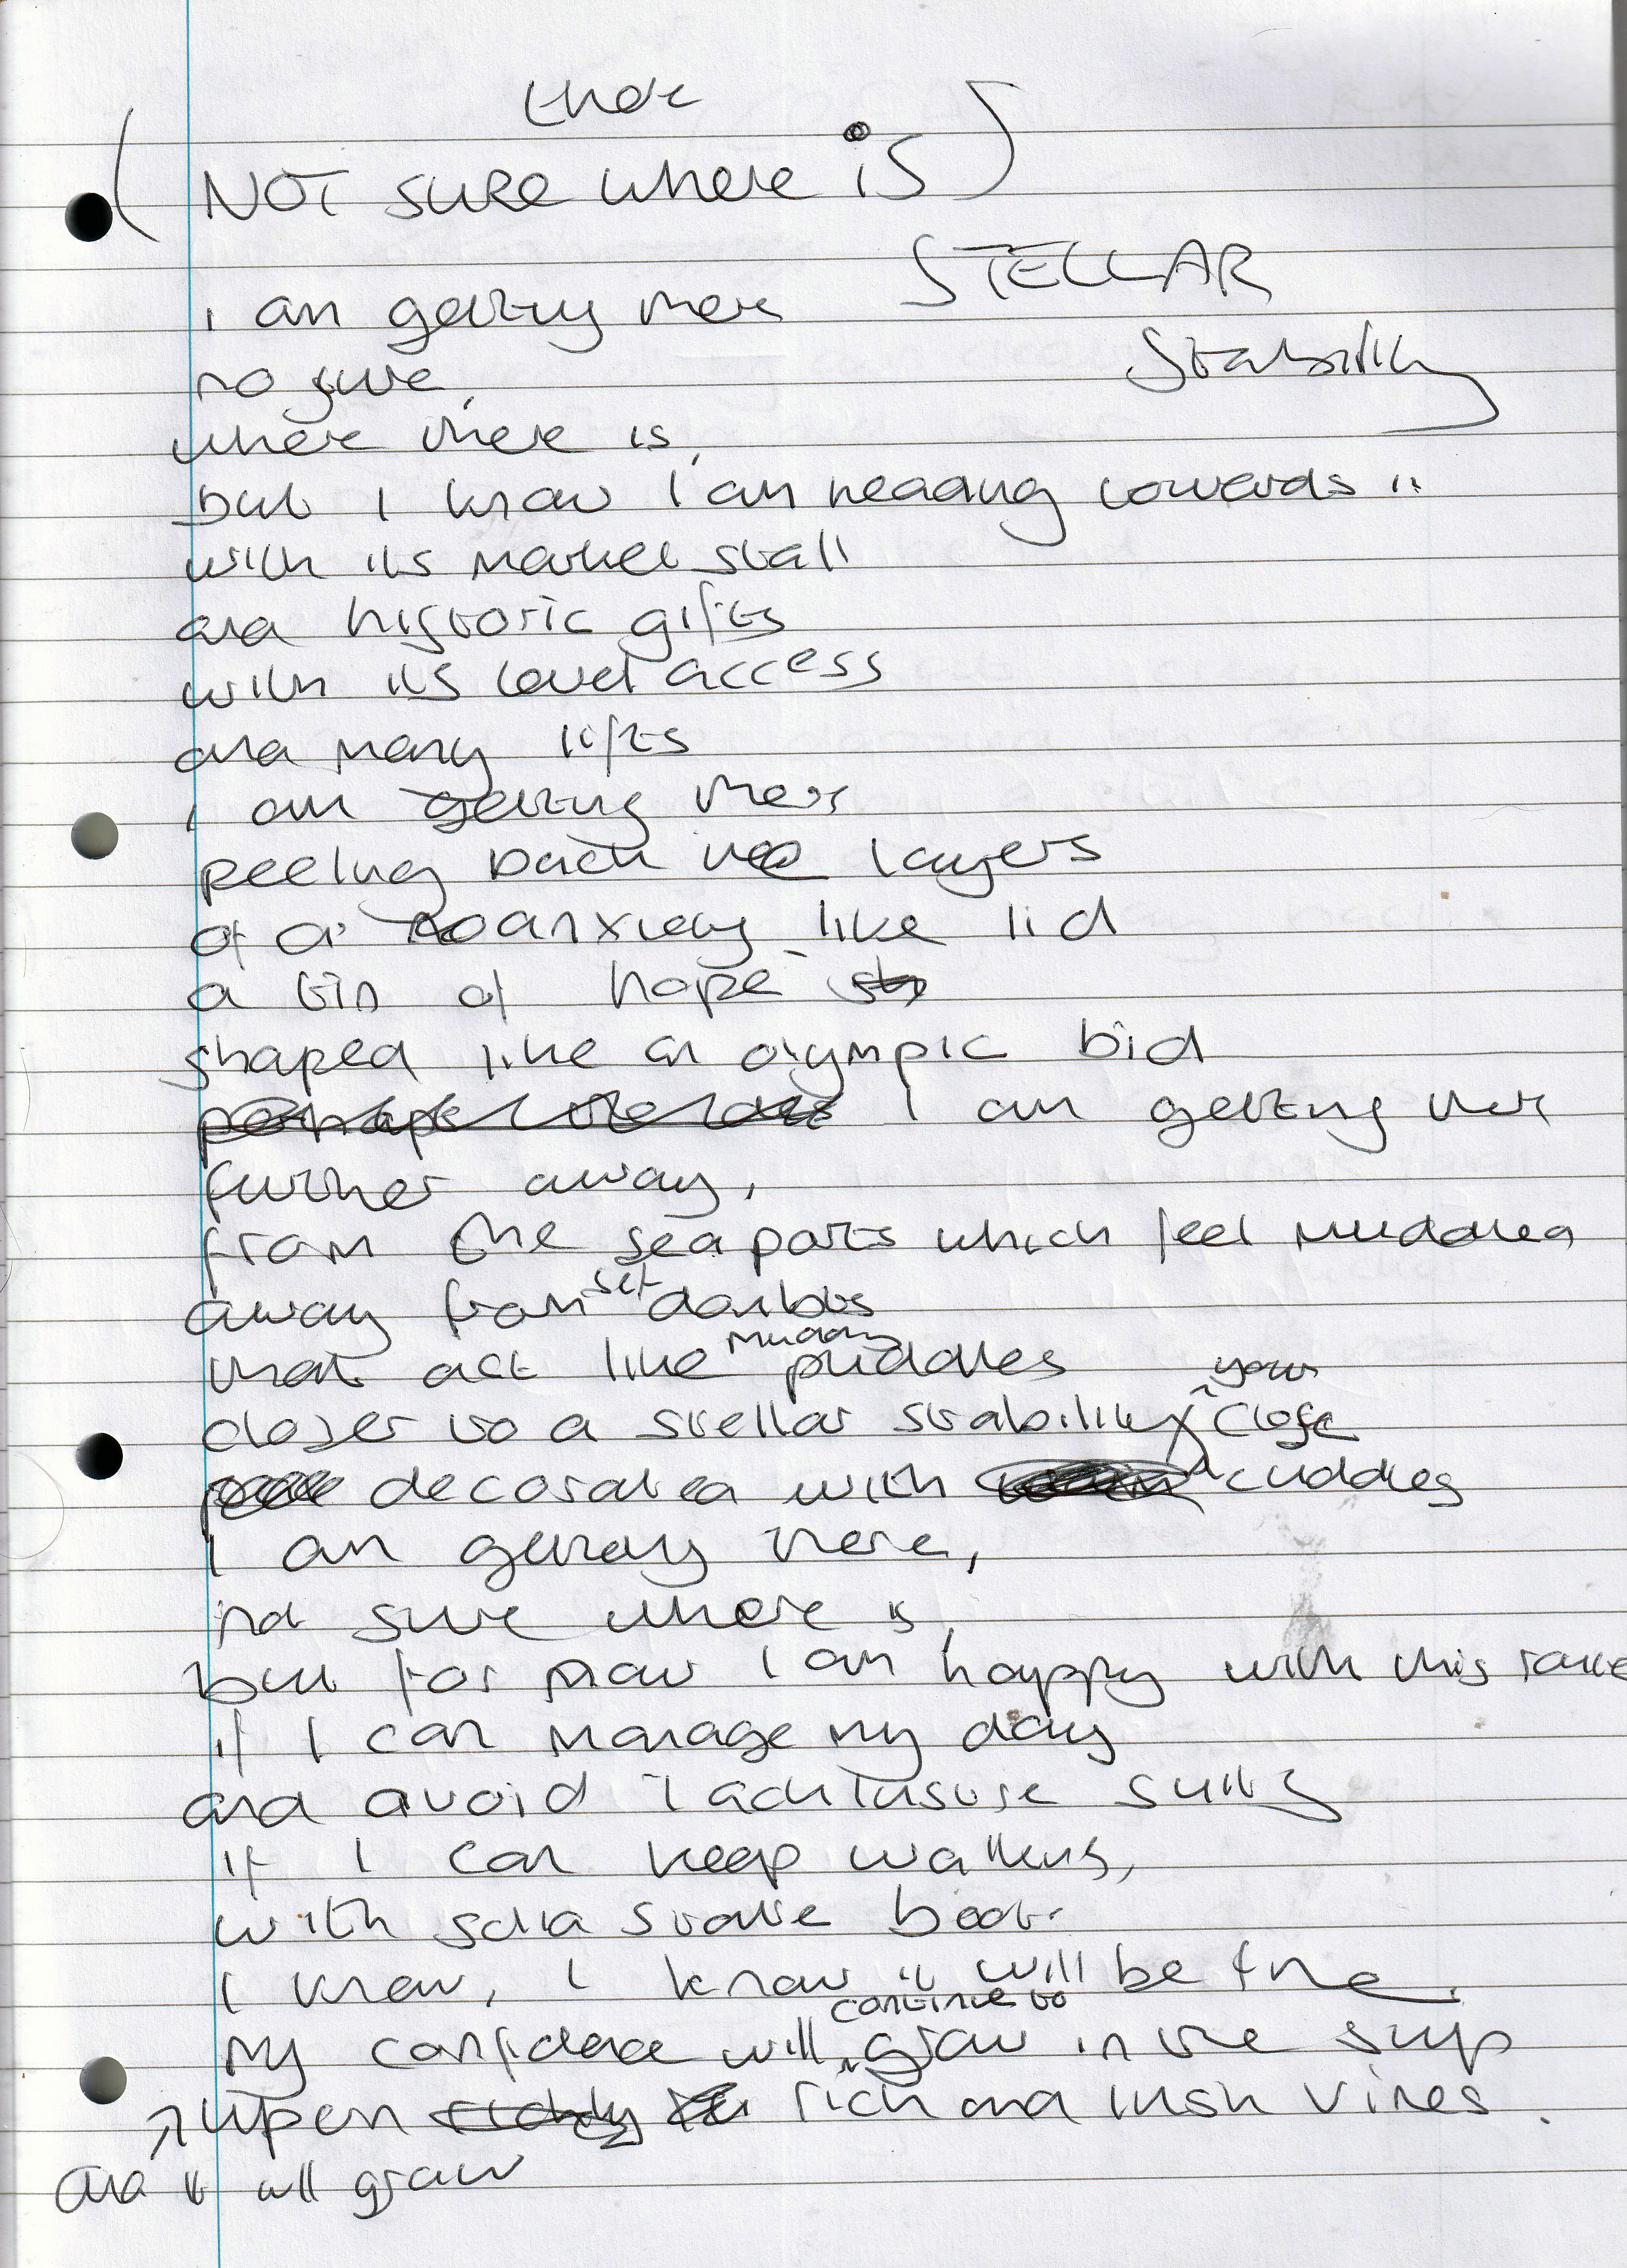 there
(NOT SURE where is)
STELLAR
Stability
i am getting there
no sure,
where there is,
but I know I am heading towards it
with its market stall
and historic gifts
with its level access
and many lifts
I am getting there
peeling back the layers
of a anxiety like lid
a tin of hope
shaped like an olympic bid
I am getting there
further away,
from the sea ports which feel muddled
away from set doubts
that act like muddy puddles
closer to a stellar stability, your close
decorated with cuddles
I am getting there,
not sure where is,
but for now I am happy with this
if I can manage my day
and avoid
if I can keep walking,
with solid stable boots
I know, I know it will be fine,
my confidence will continue to grow in the
upon rich and lush vines.
and it will grow